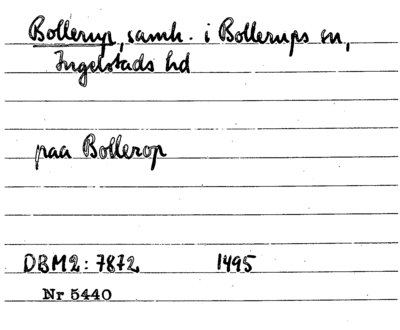 Bollerup, samh. i Bollerups sn,
Ingelstads hd
paa Bollerop
DBM2: 7872 1495
Nr 5440